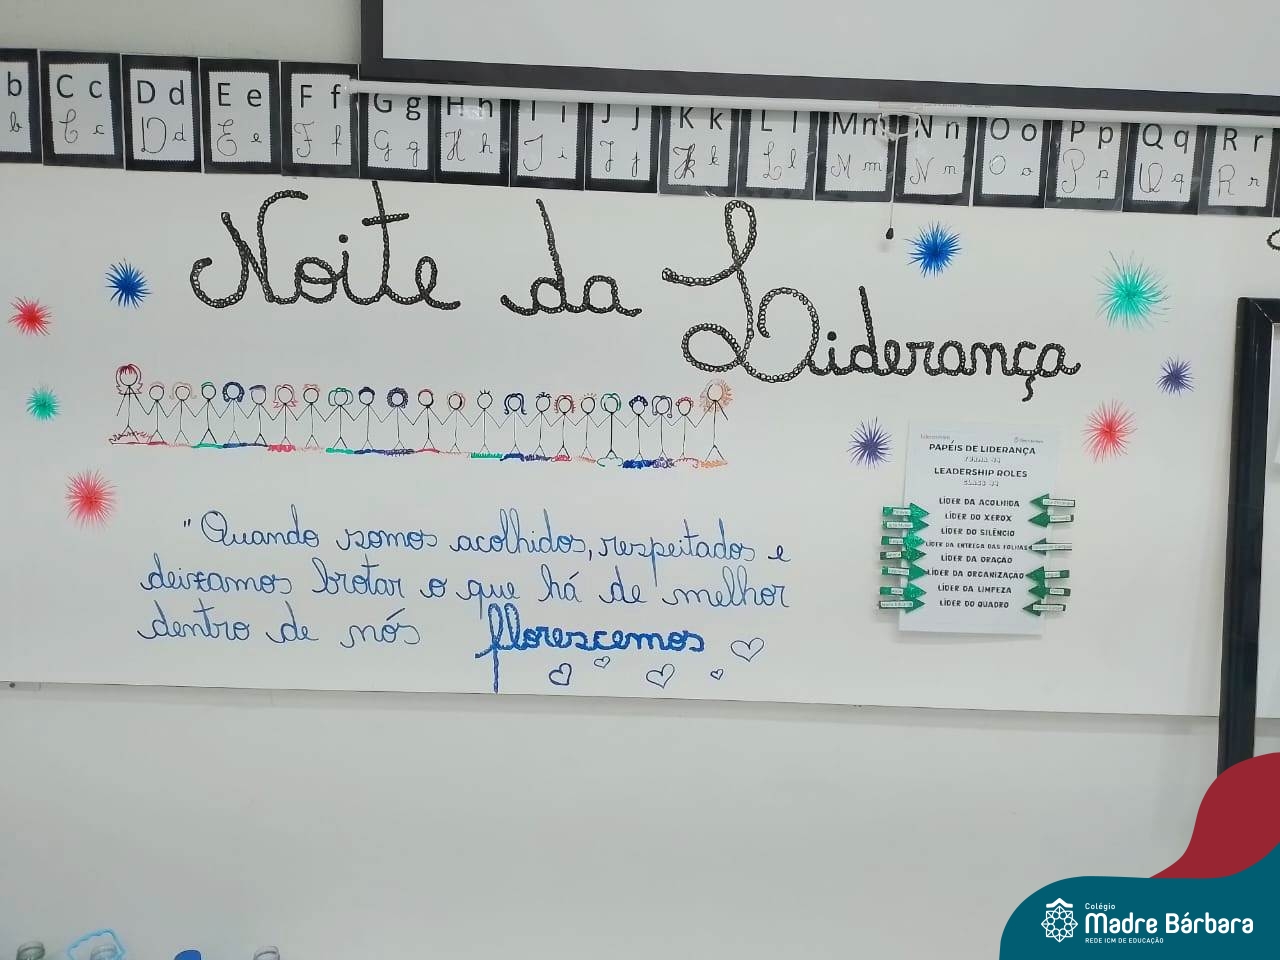 b C c D d E e F f G g H h I i J j K k L l M m N n O o P p Q q R r
b C c D d E e F f G g H h I i J j K k L l M m N n O o P p Q q R r
Noite da Liderança
"Quando somos acolhidos, respeitados e
deixamos brotar o que há de melhor
dentro de nós florescemos
PAPÉIS DE LIDERANÇA
LEADERSHIP ROLES
LÍDER DA ACOLHIDA
LÍDER DO XEROX
LÍDER DO SILÊNCIO
LÍDER DA ENTREGA DAS FOLHAS
LÍDER DA ORAÇÃO
LÍDER DA ORGANIZAÇÃO
LÍDER DA LIMPEZA
LÍDER DO QUADRO
Colégio
Madre Bárbara
REDE ICM DE EDUCAÇÃO